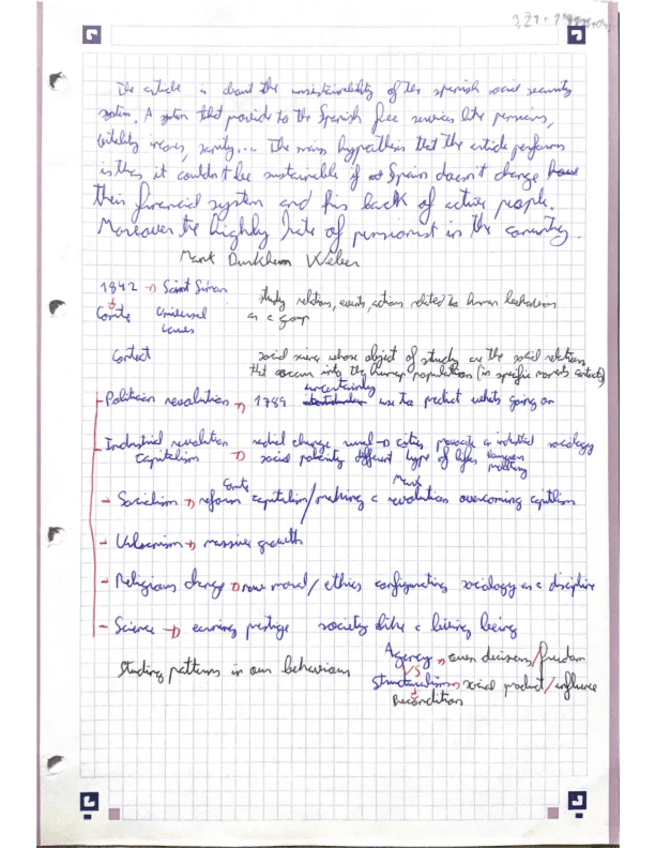 The article is about the unsustainability of the spanish social security
system. A system that provide to the Spanish free services like pensions,
incomes, sanity... The main hypothesis that the article performs
is that it couldn't be sustainable if Spain doesn't change
their financial system and his lack of active people.
Moreover the highly rate of pensionist in the country.
Marx Durkheim Weber
1842 → Saint Simon
study relations, events, actions related to human behaviour
Comte Universal as a group
Laws
Context social science whose object of study are the social relations
that occurs into the human population (in specific moments contexts)
uncertainty
- Politician revolution → 1789 use to predict whats going on
- Industrial revolution radical change rural → cities, provocate a industrial sociology
Capitalism → social poverty different type of lifes
Comte Marx
- Socialism → reform capitalism/making a revolution overcoming capitlism
- Urbanism → massive growth
- Religious change → new moral/ ethics configurating sociology as a discipline
- Science → earning prestige society like a living being
Agency → own decisions/freedom
Studing patterns in our behaviours VS
Structuralism → social product/influence
Precondition